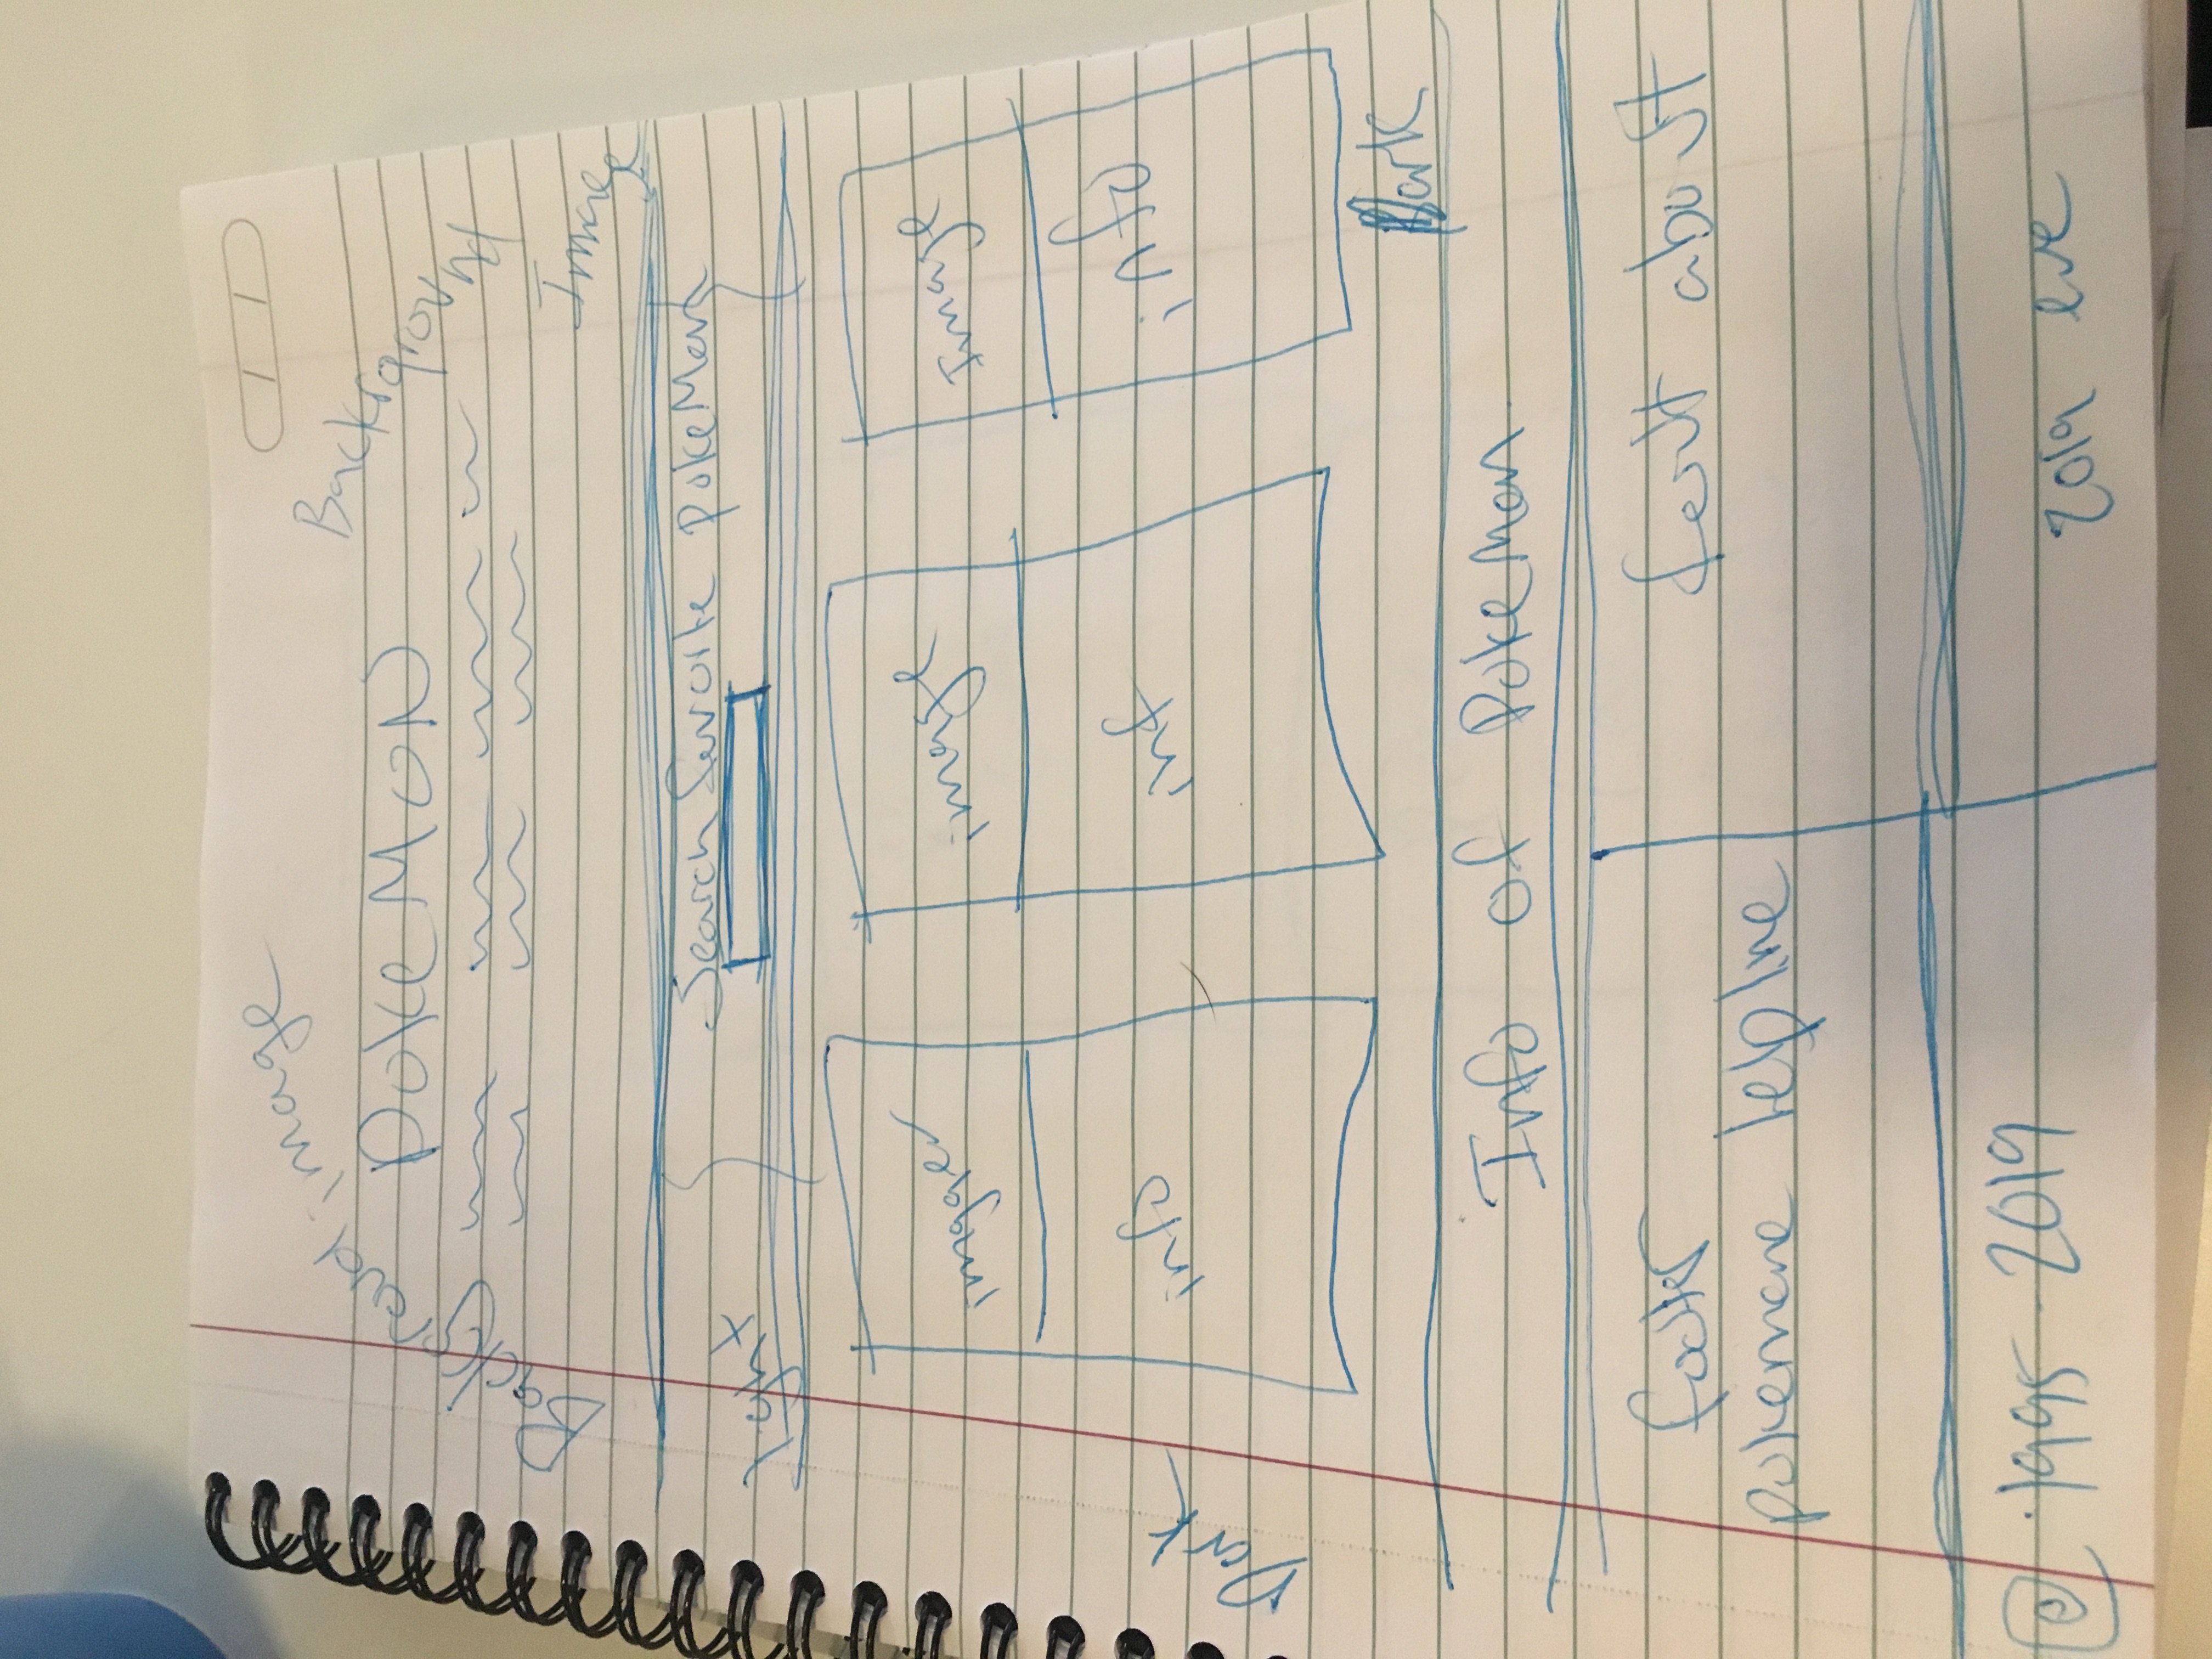 Background image
PokeMON
Background
Image
Search favorite pokeMon
light
image
image
Image
info
inf
info
Dark
Dark
Info of PokeMon
footer
pokemone help line
about
© 1995-2019
2019